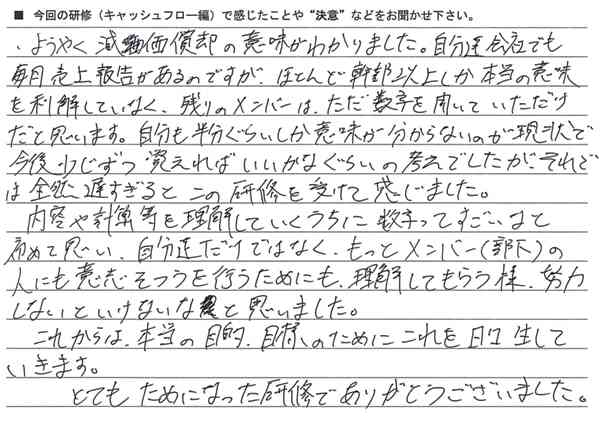 ■ 今回の研修（キャッシュフロー編）で感じたことや“決意”などをお聞かせ下さい。
・ようやく減価償却の意味がわかりました。自分達会社でも
毎月売上報告があるのですが、ほとんど幹部以上しか本当の意味
を利解していなく、残りのメンバーは、ただ数字を聞いていただけ
だと思います。自分も半分ぐらいしか意味が分からないのが現状で
今後少しずつ覚えればいいかなぐらいの考えでしたが、それで
は全然遅すぎるとこの研修を受けて感じました。
内容や計算等を理解していくうちに数字ってすごいなと
初めて思い、自分達だけではなく、もっとメンバー(部下)の
人にも意志そつうを行うためにも、理解してもらう様、努力
しないといけないなと思いました。
これからは、本当の目的、目標のためにこれを日々生して
いきます。
とてもためになった研修でありがとうございました。